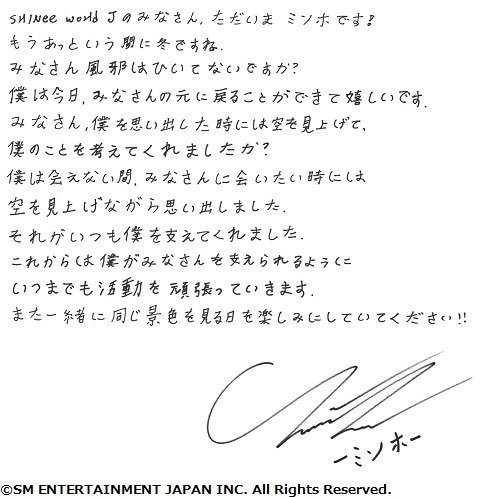 SHINee world Jのみなさん, ただいま ミンホです!
もうあっという間に冬ですね.
みなさん風邪はひいてないですか?
僕は今日, みなさんの元に戻ることができて嬉しいです.
みなさん, 僕を思い出した時には空を見上げて,
僕のことを考えてくれましたか?
僕は会えない間, みなさんに会いたい時には
空を見上げながら思い出しました.
それがいつも僕を支えてくれました.
これからは僕がみなさんを支えられるように
いつまでも活動を頑張っていきます.
また一緒に同じ景色を見る日を楽しみにしていてください!!
ーミンホー
©SM ENTERTAINMENT JAPAN INC. All Rights Reserved.